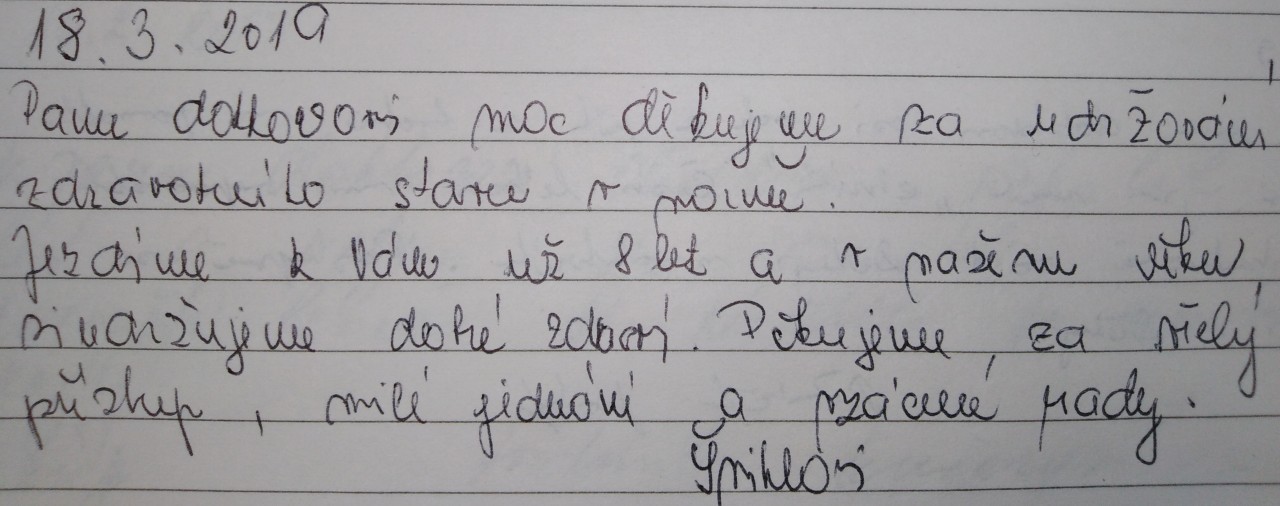 18. 3. 2019
Panu doktorovi moc děkujeme za udržování
zdravotního stavu v normě.
Jezdíme k Vám už 8 let a v našem věku
si udržujeme dobré zdraví. Děkujeme za vřelý
přístup, milé jednání a vzácné rady.